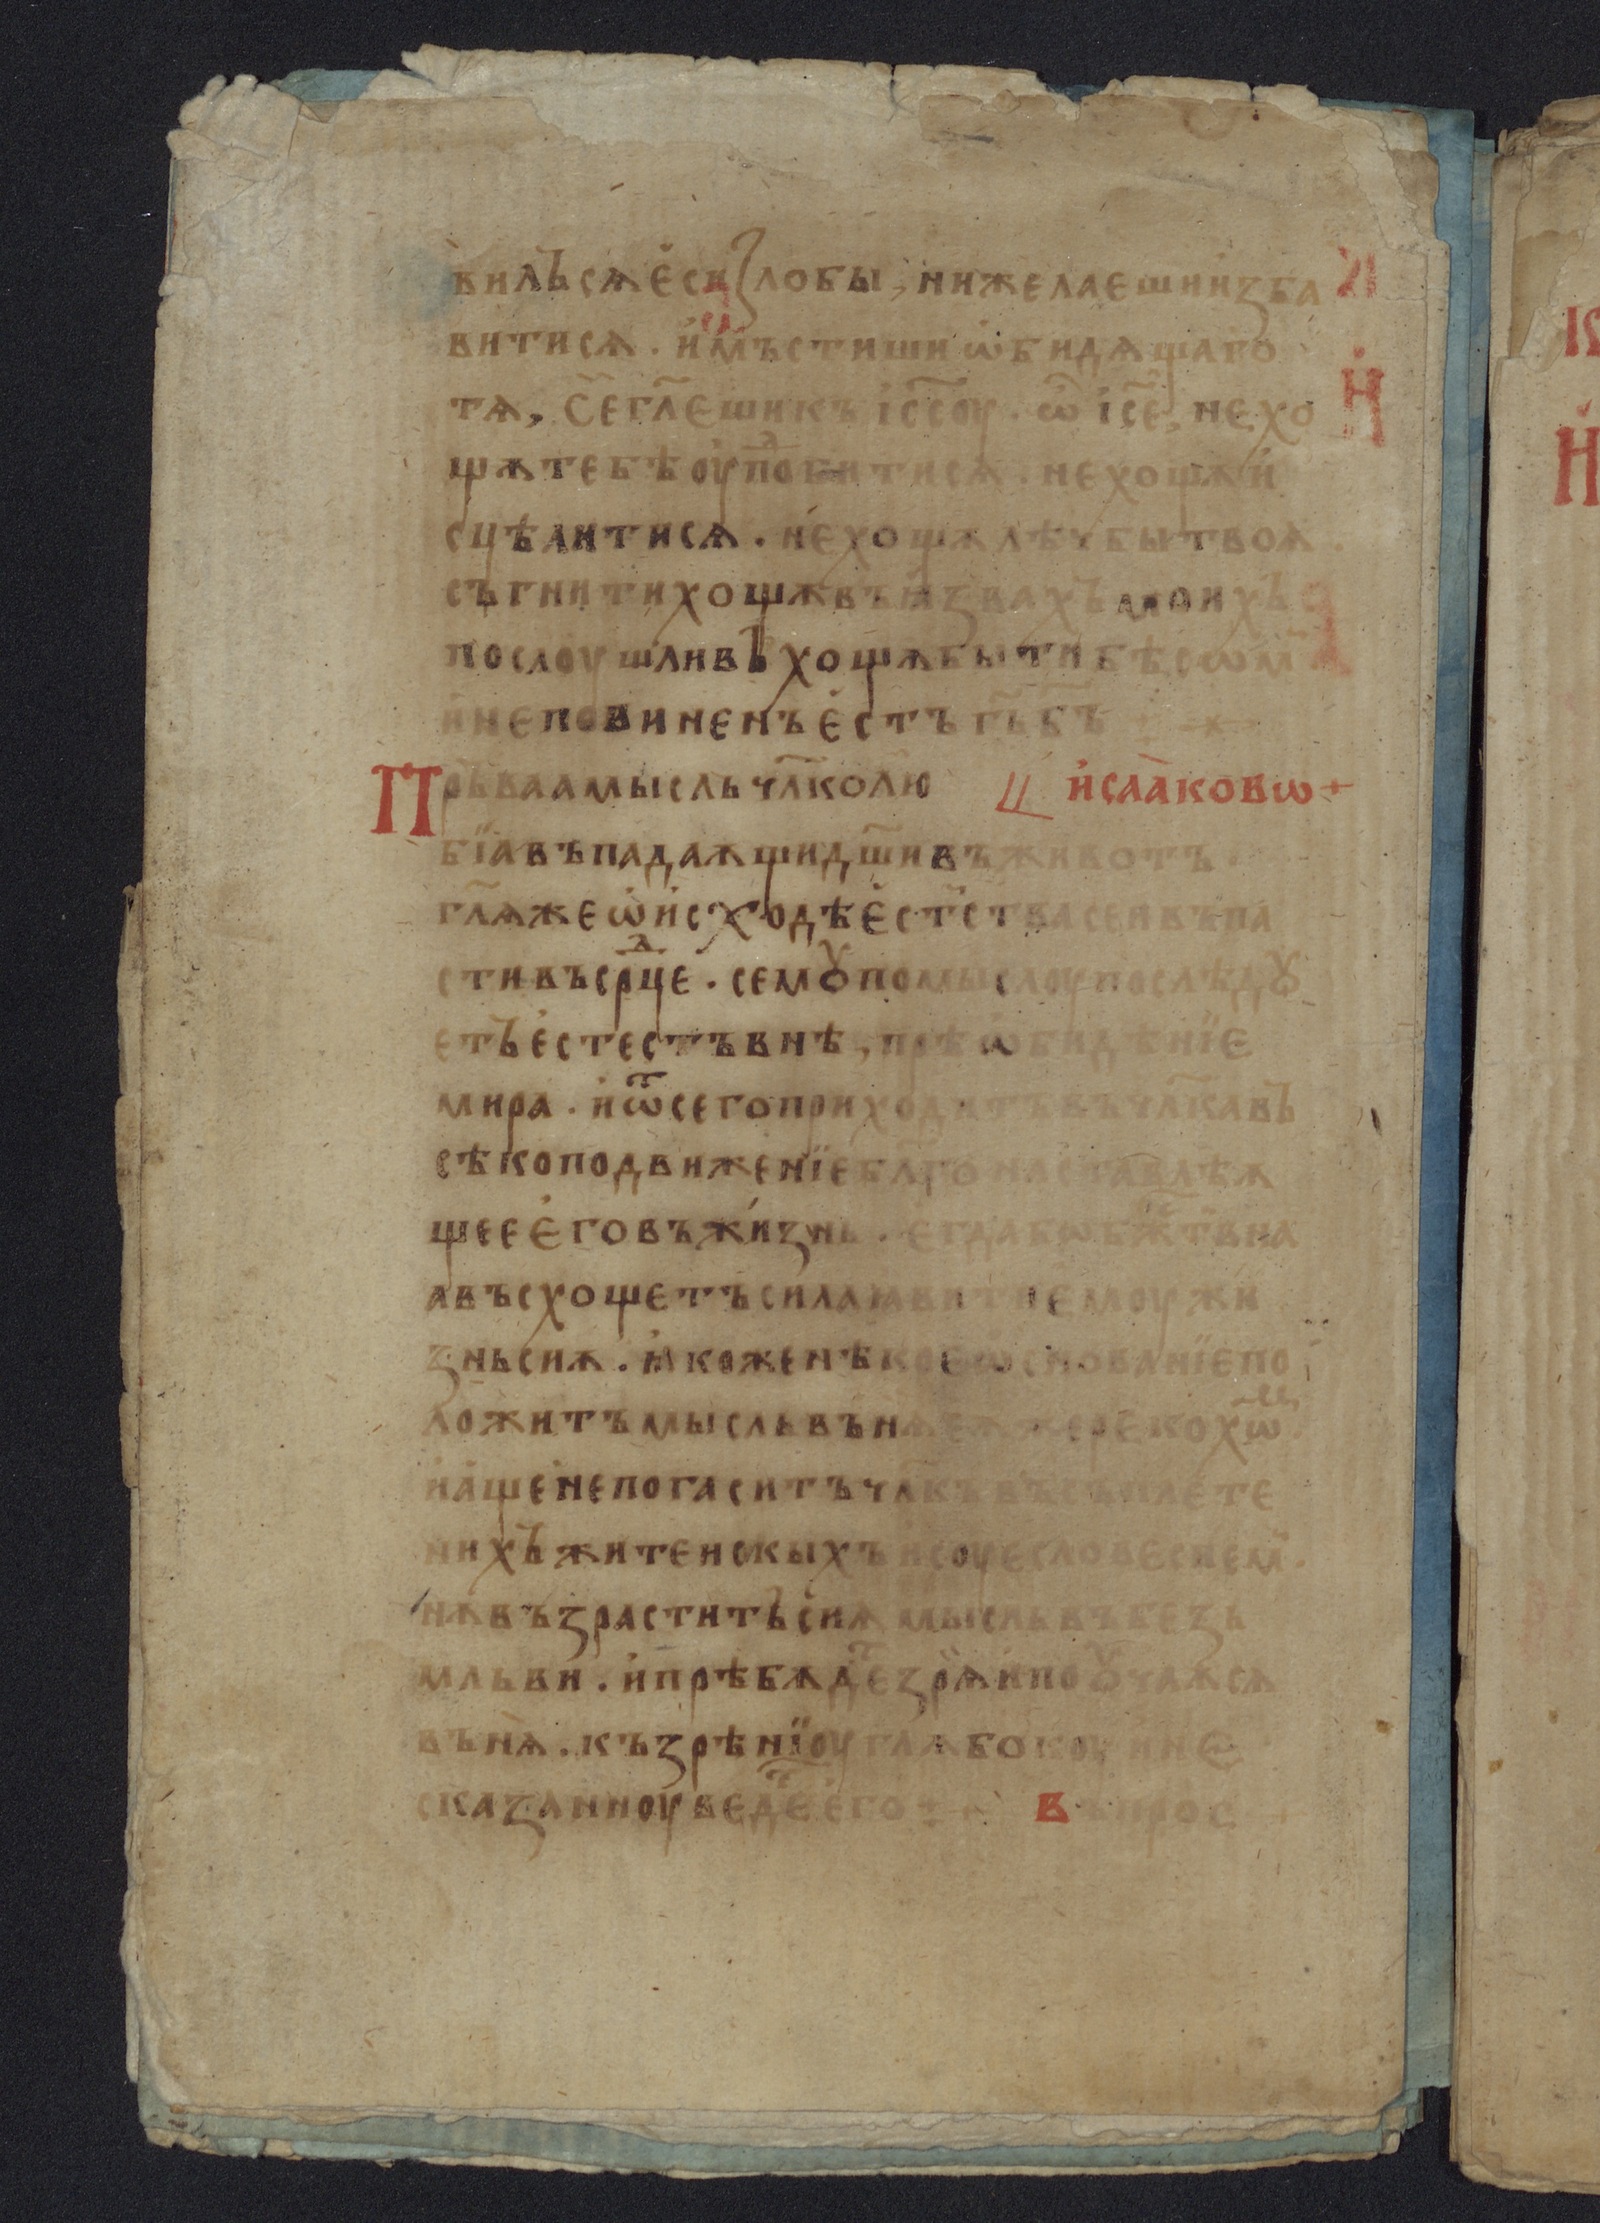 вилъсѧ есѝ злобы, нижелаешиизба
витисѧ. и҆мъстиши ѡ҆бидѧщаго
тѧ, се гл҃еши къ іс҃соу. ѡ҆ іс҃е, не хо
щѫ тебѣ оуп̾обитисѧ. не хощѫ и
сцѣлитисѧ. не хощѫ лѣчбы твоѧ.
съгнити хощѫ въ ꙗзвахъ моихъ
послоушливъ хощѫ быти бѣсѡм
и неповиненъ е҆стъ г҃ь б҃ъ
Пръваа мысль чл҃колю и҆саа҆ковѡ
бїа въпадаѫщи дш҃и въ животъ.
гл҃ѧ же ѡ҆ и҆сходѣ е҆стс҃тва сеи въпа
сти въ срⷣце. семꙋ помыслоу послѣдꙋ
етъ е҆стестъвнѣ, прѣѡбидѣнїе
мира. и҆ ѿ сего приходитъ въ чл҃ка въ
сѣко подвижение бл҃го наставлѣѫ
щее е҆го въ жизнь. е҆гда бѡ бж҃тъвна
а въсхощетъ сила ꙗвити емоу жи
знь сиѫ. ꙗкоже нѣкое ѡ҆снованїе по
ложитъ мысль въ нѫ еже рекохѡⷨ
и҆ аще не погаситъ чл҃къ въ съплете
нихъ житеискыхъ и соуесловеснем.
нѫ възраститъ сиѫ мысль въ без
мльви. и҆ прѣбѫдеⷮ зрѧ и поꙋчаѫсѧ
въ нѧ. къ зрѣнїоу глѫбокоу и не
сказанноу ведеⷮ е҆го Въпрос